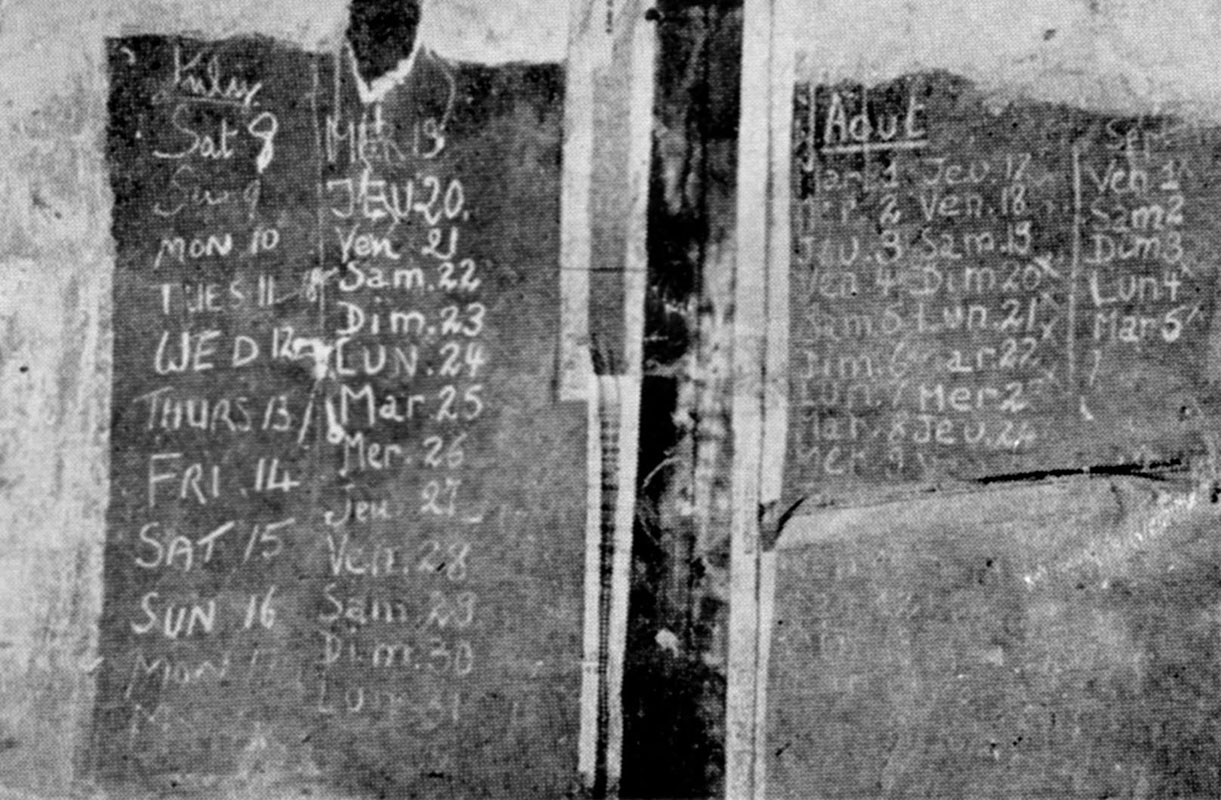 July.
Sat 8
Sun 9
MON 10
TUES 11
WED 12
THURS 13
FRI. 14
SAT 15
SUN 16
Mon 17
M
Mer 19
JEU 20.
Ven 21
Sam. 22
Dim. 23
LUN. 24
Mar. 25
Mer. 26
Jeu. 27
Ven. 28
Sam 29
Dim. 30
Lun. 31
Aout
Mar. 1
Mer. 2
Jeu. 3
Ven 4
Sam 5
Dim. 6
Lun. 7
Mar. 8
Mer. 9
Jeu. 17
Ven. 18
Sam. 19
Dim 20
Lun. 21
ar 22
Mer 2
Jeu. 24
V
Sep
Ven 1
Sam 2
Dim 3
Lun 4
Mar 5